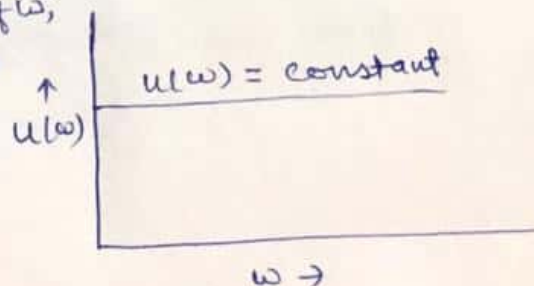 of ω,
u(ω) = constant
↑
u(ω)
ω →